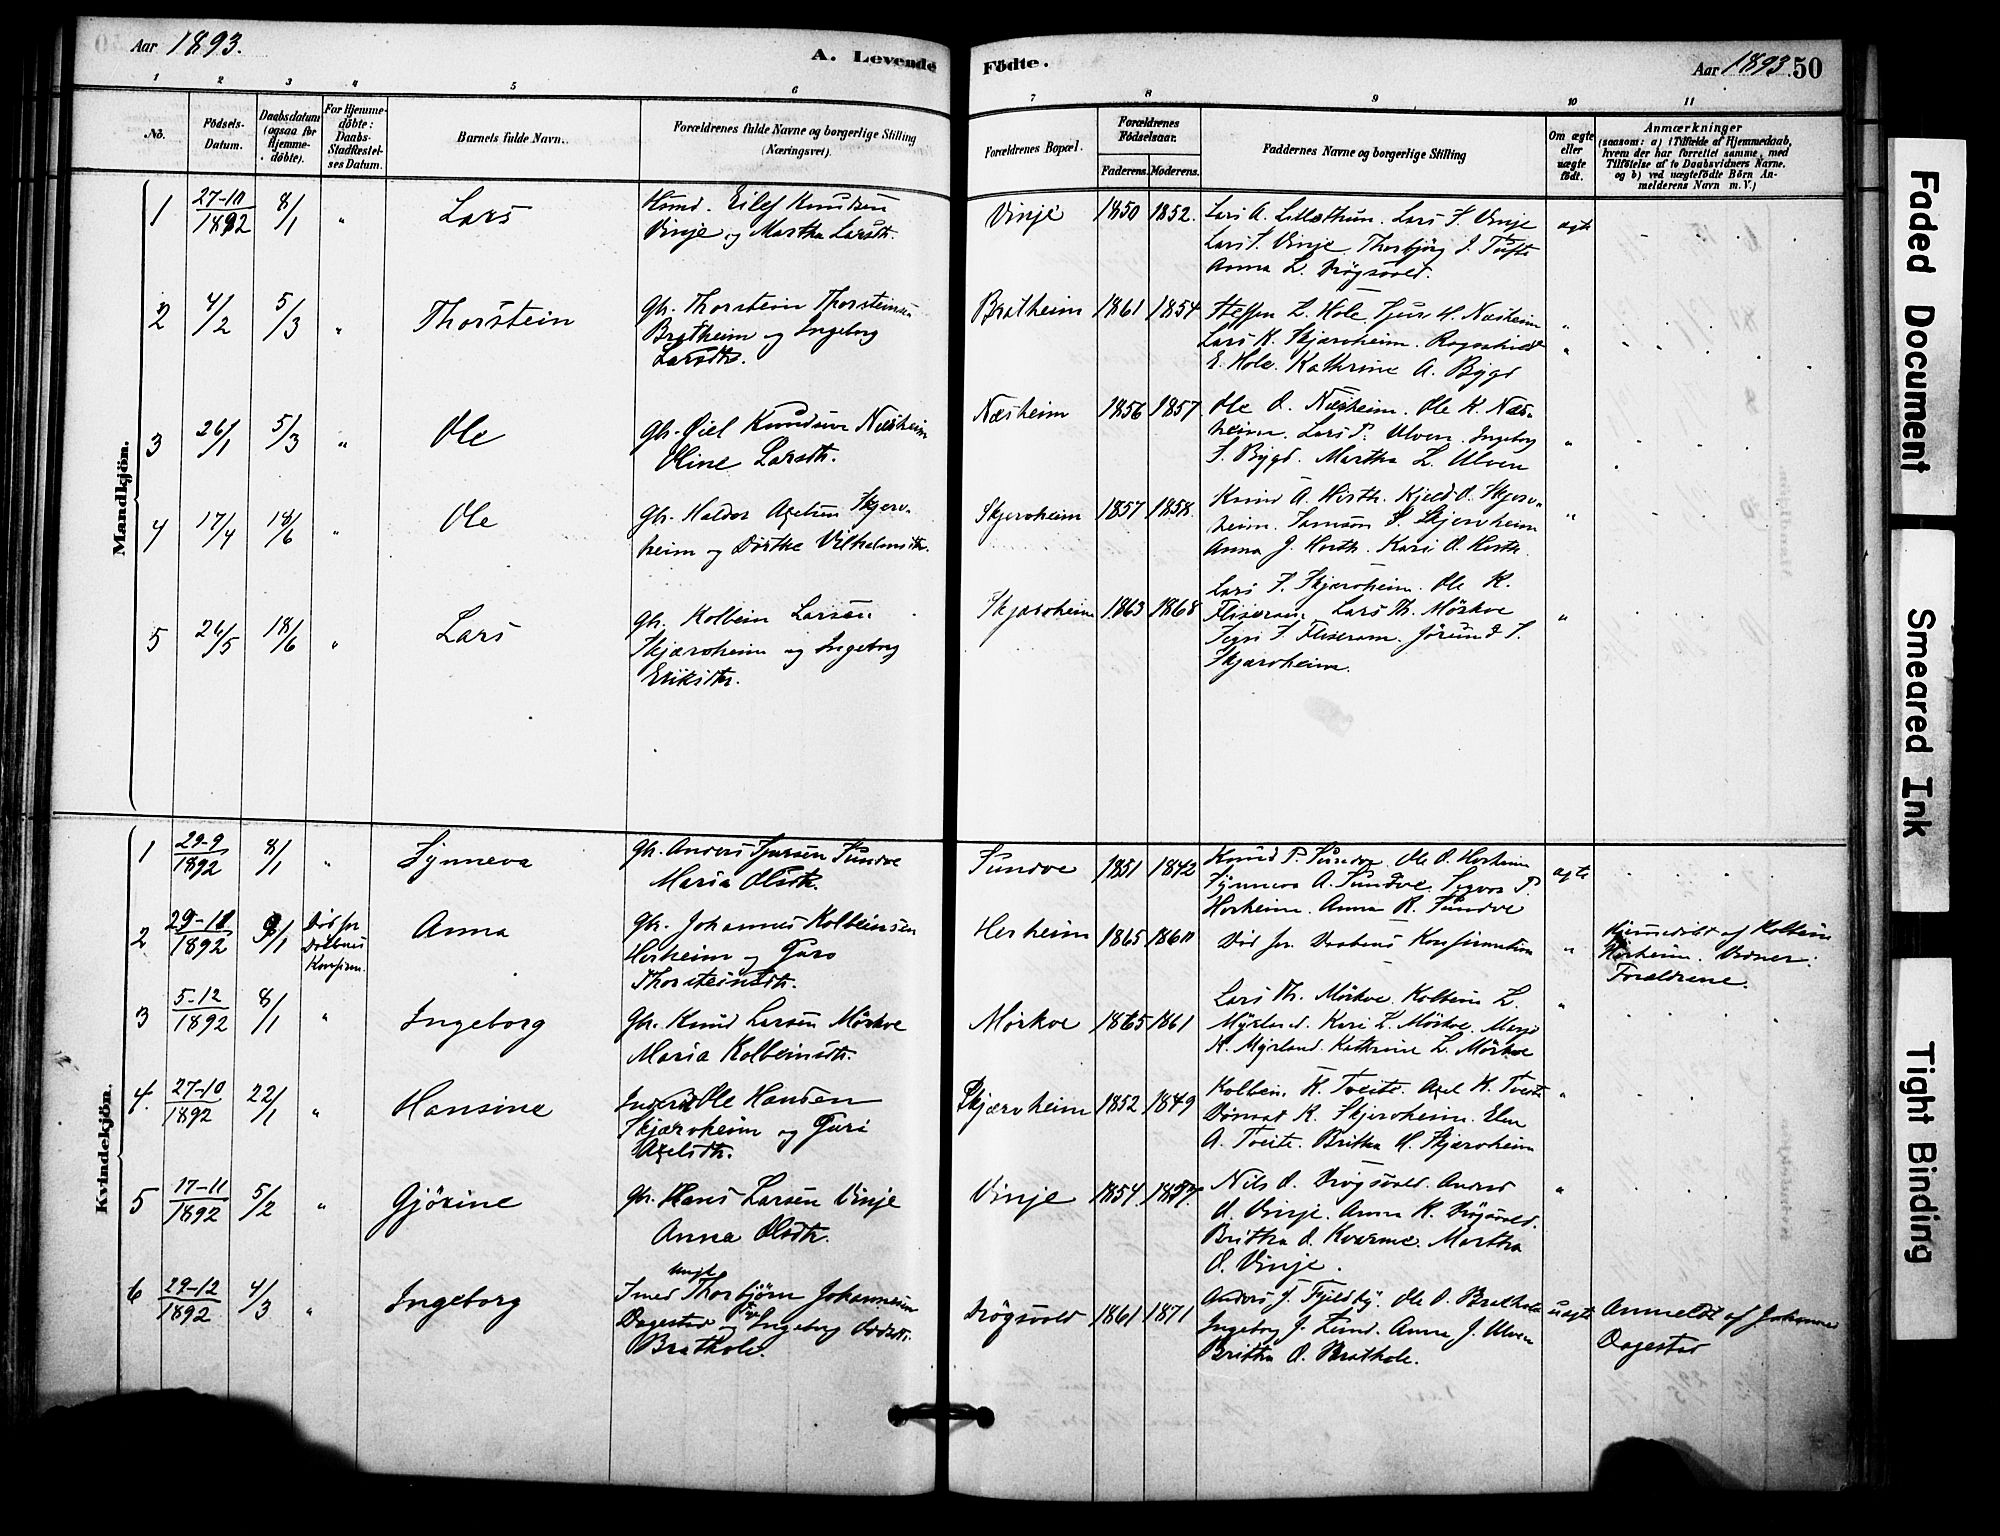 Aar 1893.
A. Levende Fødte.
Aar 1893. 50
1 2 3 4 5 6 7 8 9 10 11
No.
Fødsels-Datum.
Daabsdatum (ogsaa for Hjemme-døbte).
For Hjemme-døbte: Daabs-Stadfæstel-ses Datum.
Barnets fulde Navn.
Forældrenes fulde Navne og borgerlige Stilling (Næringsvei).
Forældrenes Bopæl.
Forældrenes Fødselsaar.
Faderens. Moderens.
Faddernes Navne og borgerlige Stilling
Om ægte eller uægte født.
Anmærkninger
(saasom: a) i Tilfælde af Hjemmedaab, hvem der har forrettet samme, med Tilføielse af to Daabsvidners Navne, og b) ved uægtefødte Børn An-melderens Navn m. V.)
Mandkjön.
1 27-10 1892 8/1 " Lars
Eilef Knudsen
Vinje og Martha Larsdtr.
Vinje 1850 1852.
Lars S. Vinje
Lars S. Vinje Thorbjörg
Anna L.
ægte
2 4/2 5/3 " Thorstein
Gbr. Thorstein Thorsteinsen
Bratheim og Ingeborg
Larsdtr.
Bratheim 1861 1854
Steffen L. Hole Sjur H. Næsheim
Lars K. Skjærvheim. Ragnhild
E. Hole. Kathrine A. Bygd
3 26/1 5/3 " Ole
Gbr. Knudsen Næsheim
Oline Larsdtr.
Næsheim 1856 1857
Ole O. Næsheim. Ole K. Næs-
heim. Lars P. Ulven. Ingeborg
S. Bygd. Martha L. Ulven
4 17/4 18/6 " Ole
Gbr. Haldor Axelsen Skjerv-
heim og Dorthe Vilhelmsdtr.
Skjervheim 1857 1858.
Knud A. Kjeld O. Skjerv-
heim. Samson S. Skjervheim
Anna J. Kari O.
5 26/5 18/6 " Lars
Gbr. Kolbein Larsen
Skjærvheim og Ingeborg
Eriksdtr.
Skjærvheim 1863 1868
Lars S. Skjærvheim. Ole K.
Fliseram. Lars Th. Mörkve
S. Fliseram. Jörund S.
Skjærvheim.
Kvindekjön.
1 29-9 1892 8/1 " Synneva
Gbr. Anders Sjursen Sundve
Maria Olsdtr.
Sundve 1851 1842
Knud P. Sundve. Ole O. Herheim
Synneva A. Sundve.
Herheim. Anna K. Sundve
ægte
2 29-10 1892 Anna
Gbr. Johannes Kolbeinsen
Herheim og Guro
Thorsteinsdtr.
Herheim 1865
Død før Daabens Konfirmation
Hjemmedöbt af Kolbein
Herheim.
Forældrene.
3 5-12 1892 8/1 " Ingeborg
Gbr. Knud Larsen Mörkve
Maria Kolbeinsdtr.
Mörkve 1865 1861
Lars Th. Mörkve. Kolbein L.
Myrland. Kari L. Mörkve.
K. Myrland. Kathrine L. Mörkve
4. 27-10 1892 22/1 " Hansine
Ole Hansen
Skjærvheim og Guri
Axelsdtr.
Skjærvheim 1852 1849
Kolbein K. Tveite. Axel K. Tveite
K. Skjervheim. Elen
A. Tveite. Britha H. Skjærvheim
5 17-11 1892 5/2 " Gjörine
Gbr. Hans Larsen Vinje
Anna Olsdtr.
Vinje 1854
Nils O.
O. Vinje. Anna K.
Britha O. Kvarme. Martha
O. Vinje.
6 29-12 1892 4/3 " Ingeborg
Thorbjörn Johannesen
Dagestad og Pige Ingeborg
Brathole.
1861 1871
Anders J. Ole O. Brathole
Ingeborg J. Lund. Anna J. Ulven
Britha O. Brathole.
uægte
Anmeldt af Johannes
Dagestad
Faded Document
Smeared Ink
Tight Binding